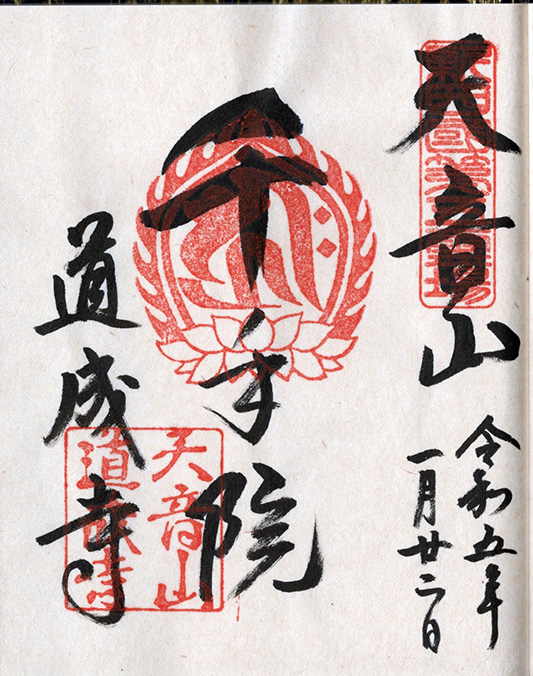 天音山
令和五年
一月廿二日
千手院
道成寺
天音山
道成寺